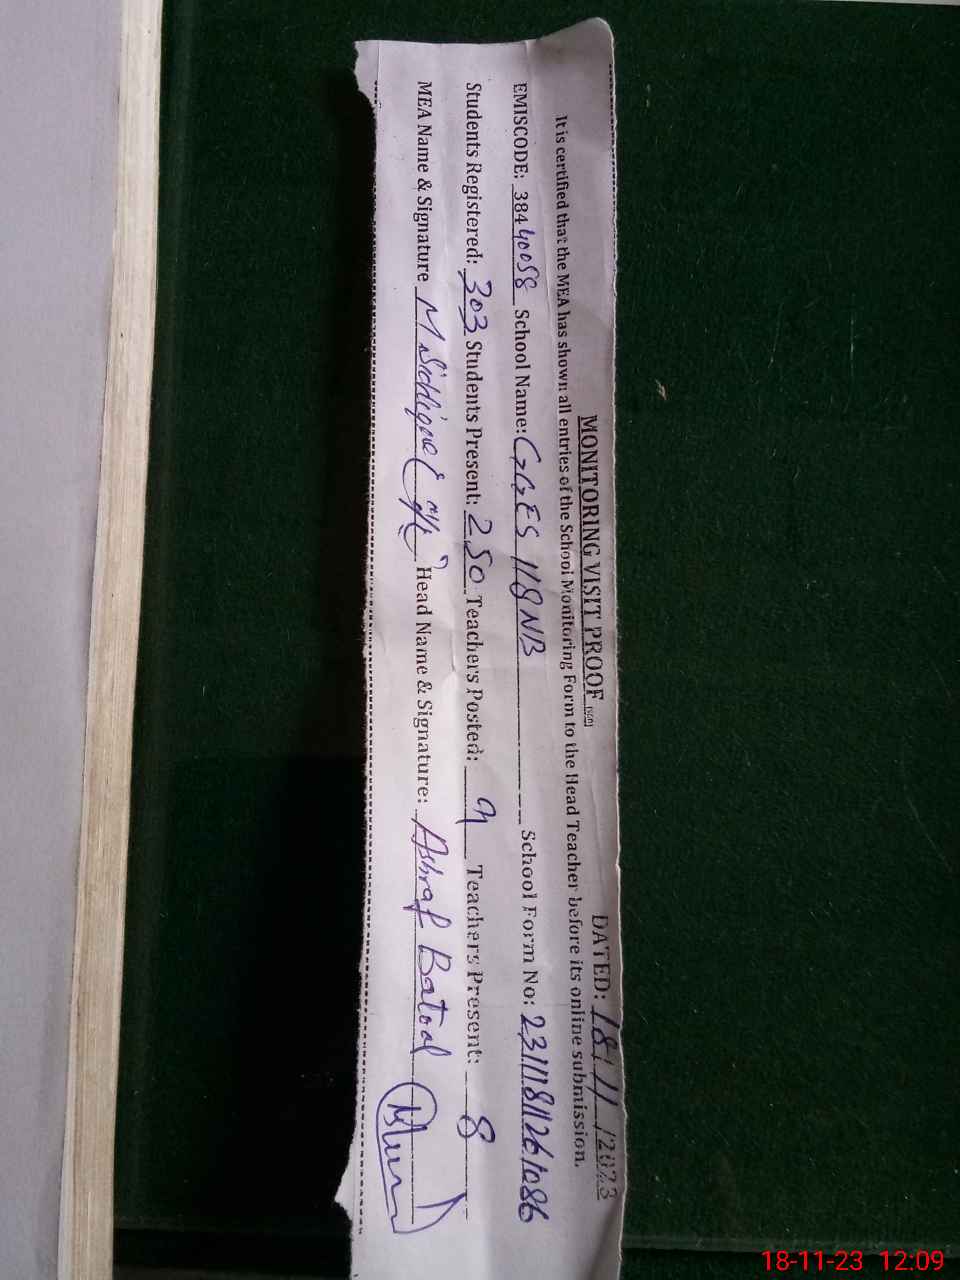 MONITORING VISIT PROOF DATED: 18/11/2023
It is certified that the MEA has shown all entries of the School Monitoring Form to the Head Teacher before its online submission.
EMISCODE: 38440058 School Name: GGES 118NB School Form No:
Students Registered: 303 Students Present: 250 Teachers Posted: 9 Teachers Present: 8
MEA Name & Signature M Siddique Head Name & Signature: Ashraf Batool
18-11-23 12:09